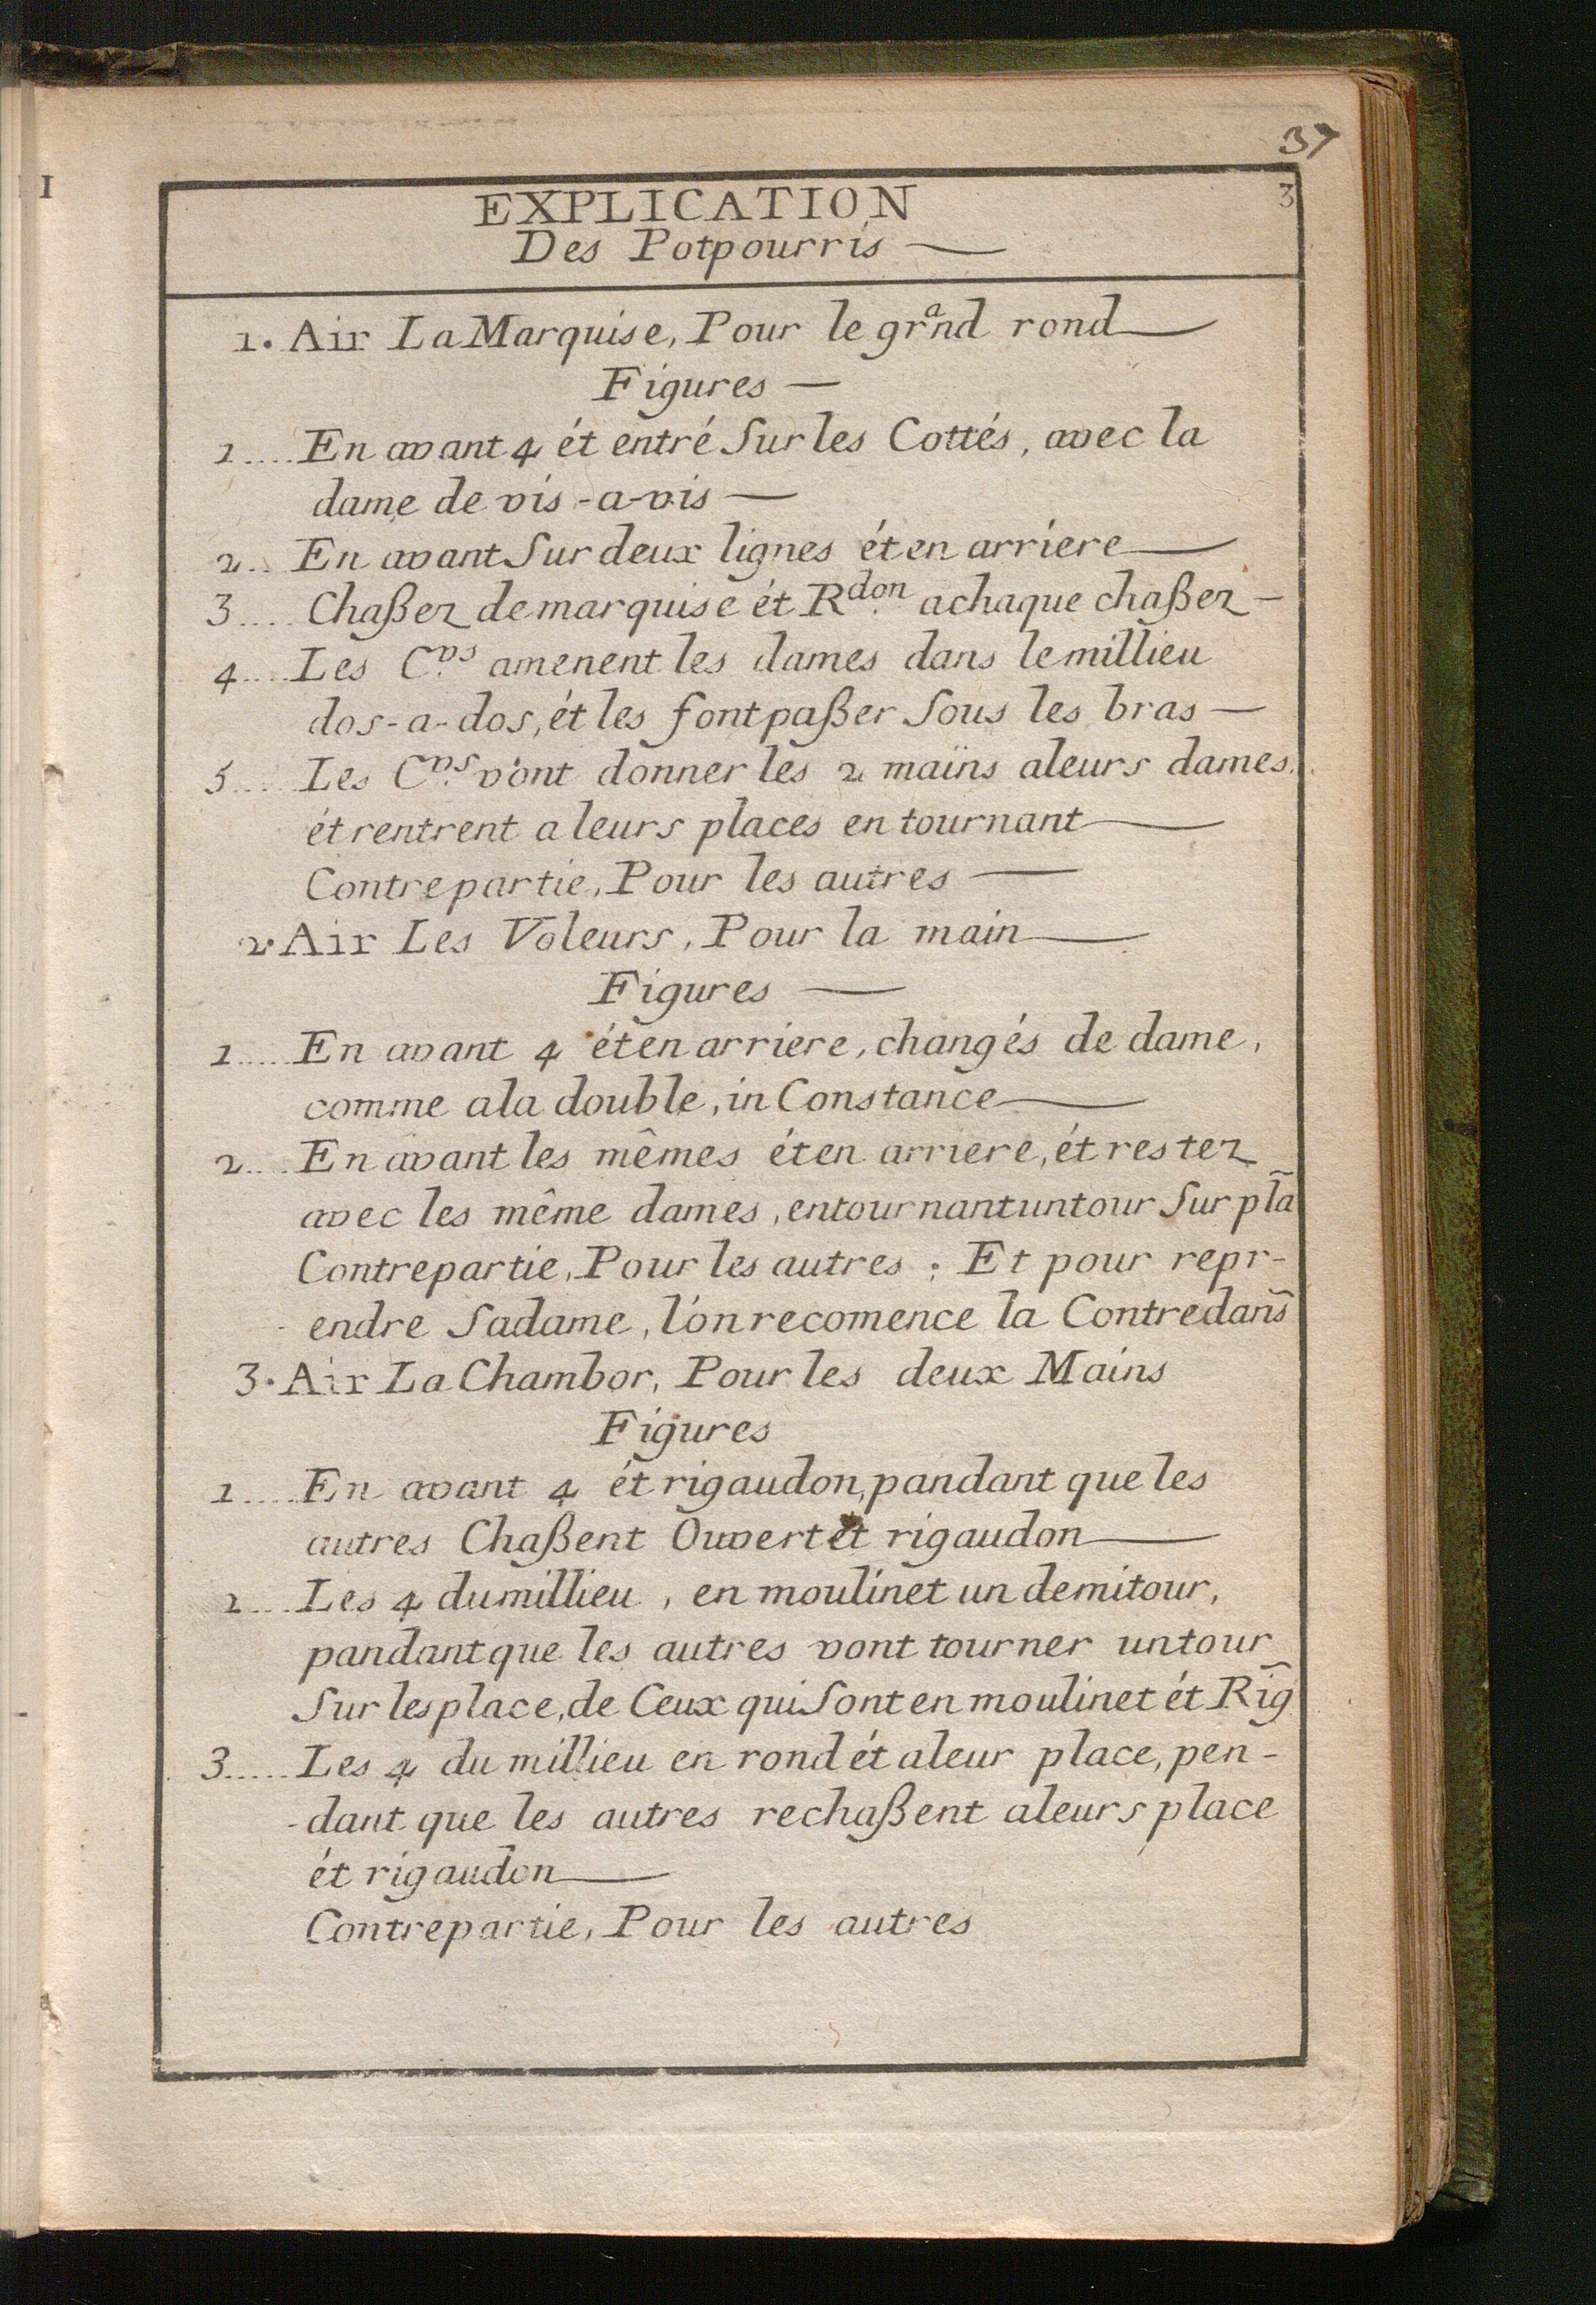 37
I
3
EXPLICATION
Des Potpourris
1. Air La Marquise, Pour le grand rond
Figures
1.... En avant 4 ét entré Sur les Cottés, avec la
dame de vis-a-vis
2... En avant Sur deux lignes ét en arriere
3.... Chaßez de marquise ét R.don a chaque chaßez
4.... Les C.vs amenent les dames dans le millieu
dos-a-dos, ét les font paßer Sous les bras
5.... Les C.vs vont donner les 2 mains a leurs dames.
ét rentrent a leurs places en tournant
Contrepartie, Pour les autres
2. Air Les Voleurs, Pour la main
Figures
1.... En avant 4 ét en arriere, changés de dame,
comme a la double, in Constance
2.... En avant les mêmes ét en arriere, ét restez
avec les même dames, en tournant un tour Sur pla̅
Contrepartie, Pour les autres; Et pour repr-
endre Sa dame, l'on recomence la Contredans̅
3. Air La Chambor, Pour les deux Mains
Figures
1.... En avant 4 ét rigaudon, pandant que les
autres Chaßent Ouvert ét rigaudon
2.... Les 4 du millieu, en moulinet un demitour,
pandant que les autres vont tourner un tour
Sur les place, de Ceux qui Sont en moulinet ét Rig̅
3..... Les 4 du millieu en rond ét a leur place, pen-
-dant que les autres rechaßent a leurs place
ét rigaudon
Contrepartie, Pour les autres